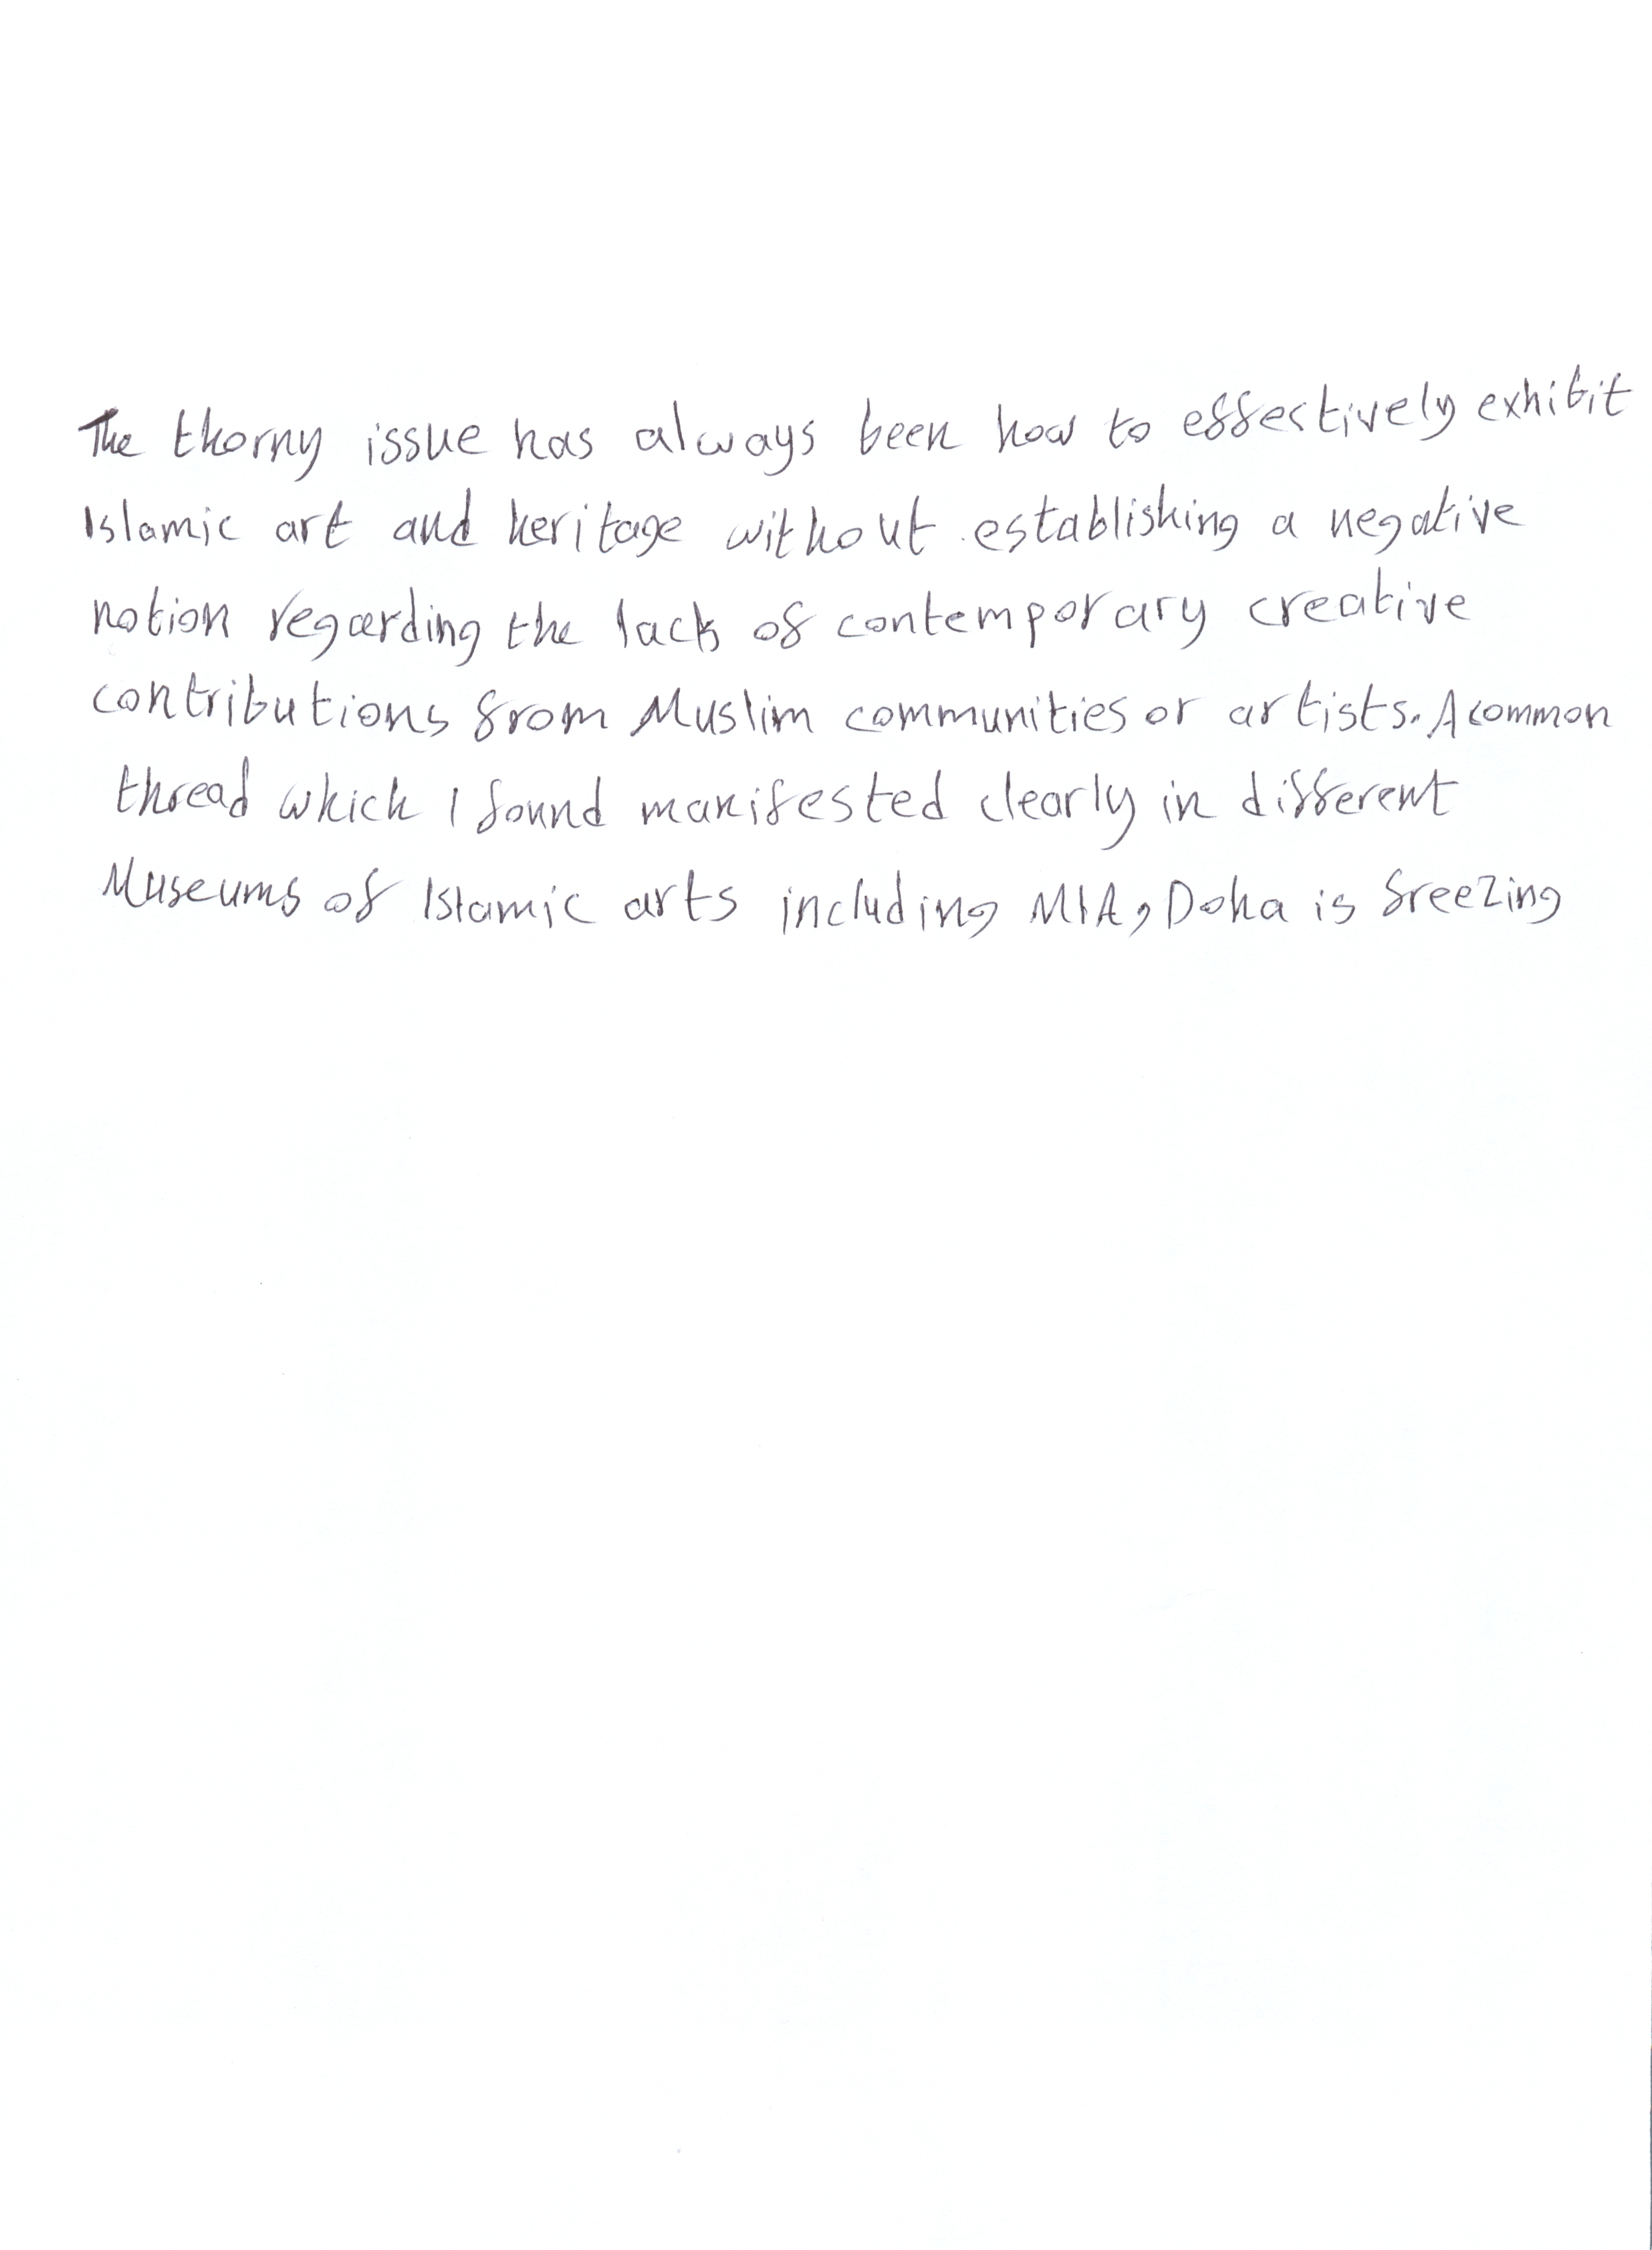 The thorny issue has always been how to effectively exhibit
Islamic art and heritage without establishing a negative
notion regarding the lack of contemporary creative
contributions from Muslim communities or artists. A common
thread which I found manifested clearly in different
Museums of Islamic arts including MIA, Doha is freezing